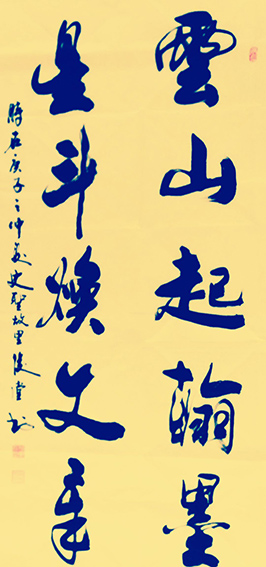 雲山起翰墨
星斗煥文章
時在庚子之仲夏史聖故里